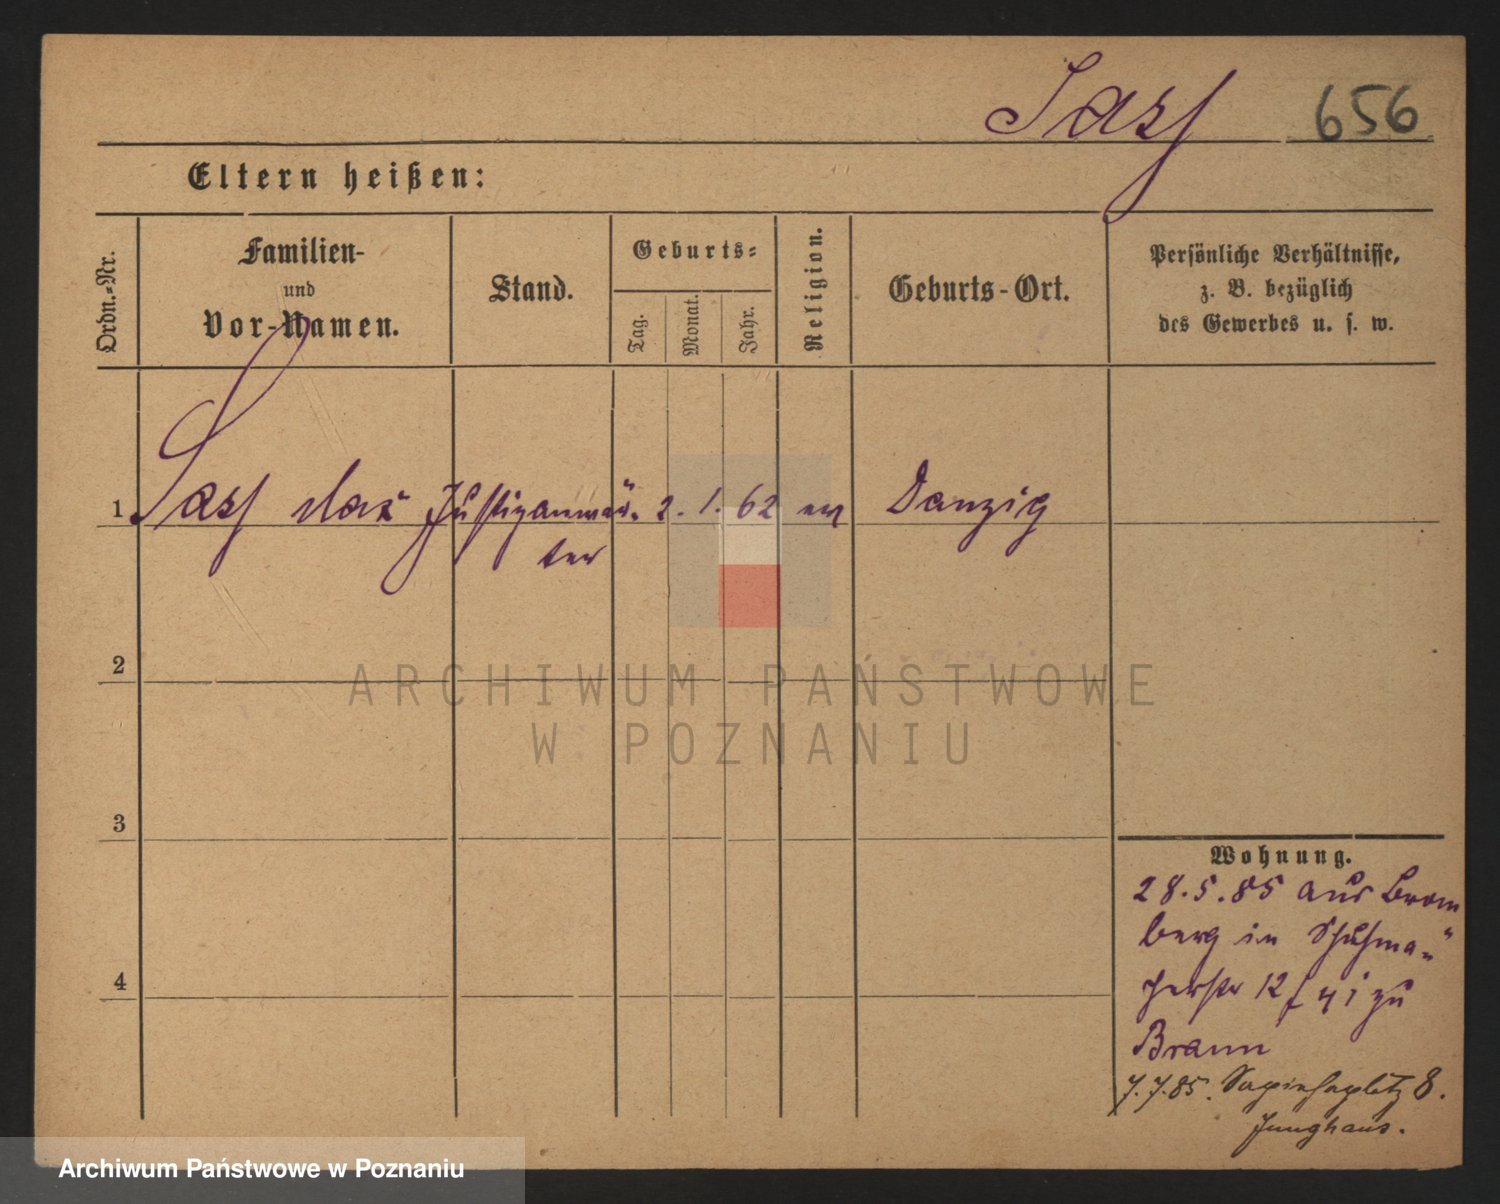 Sass 656
Eltern heißen:
Ordn.-Nr.
Familien-
und
Vor-Namen.
Stand.
Geburts-
Tag.
Monat.
Jahr.
Religion.
Geburts-Ort.
Persönliche Verhältnisse,
z. B. bezüglich
des Gewerbes u. s. w.
1 Sass Max Justizanwär- 2. 1. 62 ev Danzig
ter
2
3
4
Wohnung.
28.5.85 aus Brom
berg in Schuhma-
cherstr 12 zu
Braun
7.7.85. Sapiehaplatz 8.
Junghans.
ARCHIWUM PAŃSTWOWE
W POZNANIU
Archiwum Państwowe w Poznaniu